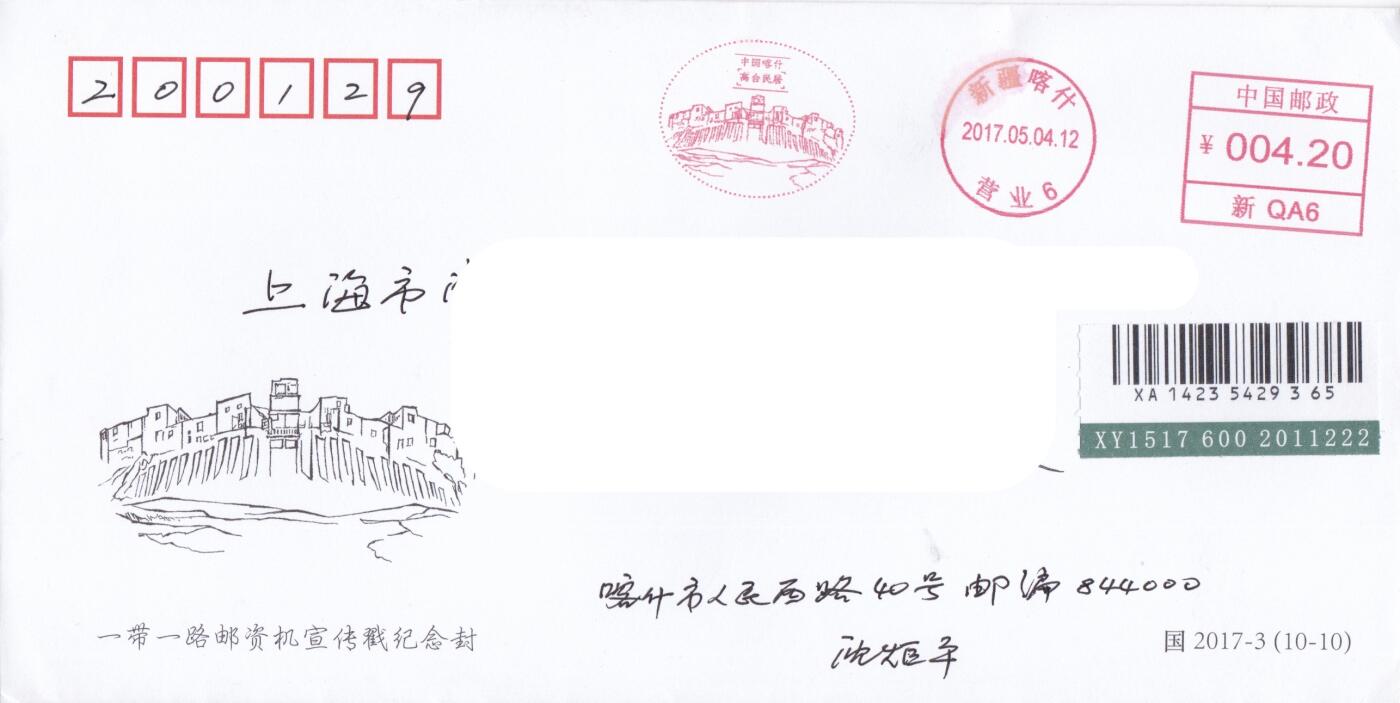 200129
中国喀什
高台民居
新疆喀什
2017.05.04.12
营业6
中国邮政
¥ 004.20
新 QA6
上海市
XA 1423 5429 3 65
XY1517 600 2011222
喀什市人民西路40号 邮编 844000
一带一路邮资机宣传戳纪念封
国 2017-3 (10-10)